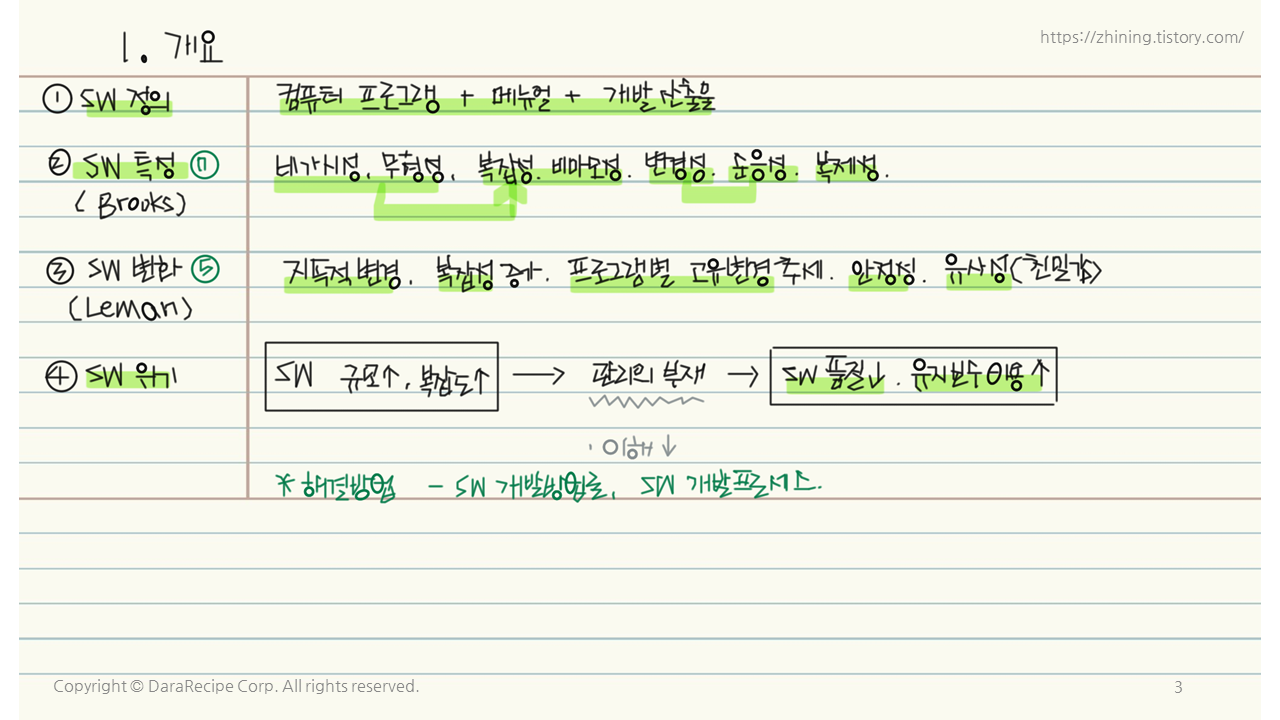 https://zhining.tistory.com/
1. 개요
① SW 정의 컴퓨터 프로그램 + 메뉴얼 + 개발 산출물
② SW 특성 ⑦ 비가시성, 무형성, 복잡성. 비마모성. 변경성. 순응성. 복제성.
(Brooks)
③ SW 변화 ⑤ 지속적 변경, 복잡성 증가. 프로그램별 고유변경 추세. 안정성. 유사성(친밀감)
(Leman)
④ SW 위기 SW 규모↑, 복잡도↑ → 관리의 부재 → SW 품질↓. 유지보수 비용↑
· 이해↓
* 해결방법 - SW 개발방법론, SW 개발프로세스.
Copyright © DaraRecipe Corp. All rights reserved. 3